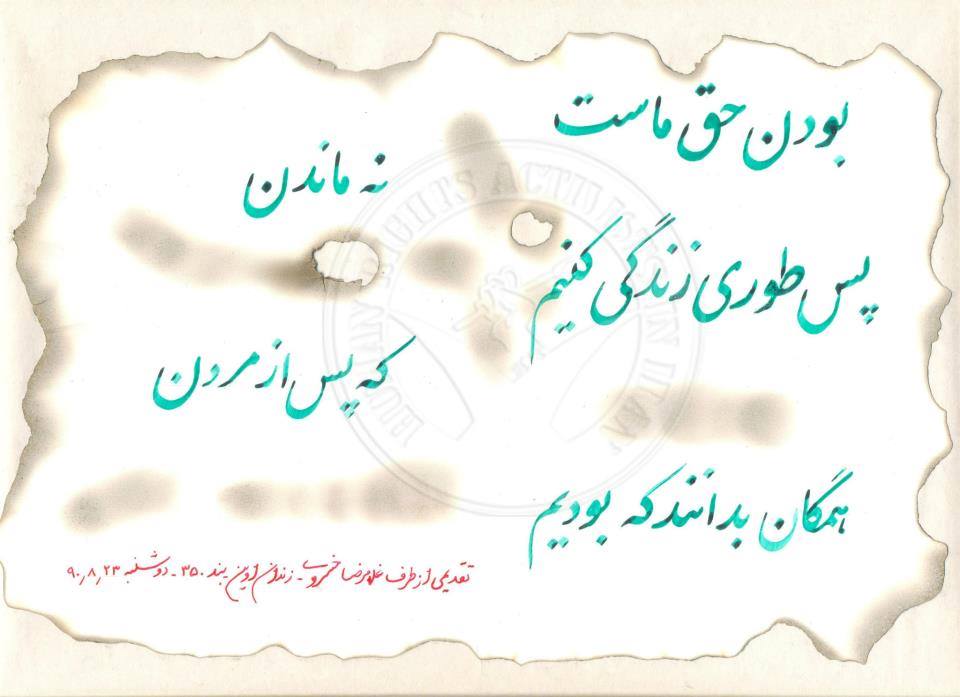 بودن حق ماست
نه ماندن
پس طوری زندگی کنیم
که پس از مردن
همگان بدانند که بودیم
تقدیمی از طرف غلامرضا خسروی - زندان اوین بند ۳۵۰ - دوشنبه ۹۰٫۸٫۲۳
HUMAN RIGHTS ACTIVISTS IN IRAN